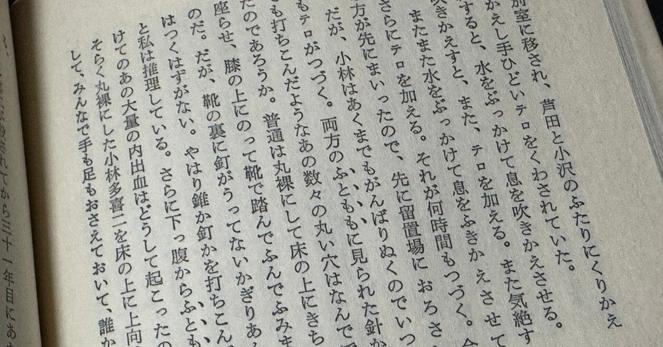 別室に移され、芦田と小沢のふたりにくりかえ
かえし手ひどいテロをくわされていた。
すると、水をぶっかけて息を吹きかえさせる。
吹きかえすと、また、テロを加える。また気絶す
またまた水をぶっかけて息をふきかえさせて
さらにテロを加える。それが何時間もつづく。
方が先にまいったので、先に留置場におろさ
だが、小林はあくまでもがんばりぬくのでいつ
もテロがつづく。両方のふとももに見られた針か
でも打ちこんだようなあの数々の丸い穴はなんで
たのであろうか。普通は丸裸にして床の上にきち
座らせ、膝の上にのって靴で踏んでふんでふみま
のだ。だが、靴の裏に釘がうってないかぎりあん
はつくはずがない。やはり錐か釘かを打ちこん
と私は推理している。さらに下っ腹からふともも
けてのあの大量の内出血はどうして起こったの
そらく丸裸にした小林多喜二を床の上に上向
して、みんなで手も足もおさえておいて、誰か
てから三十一年目にあ